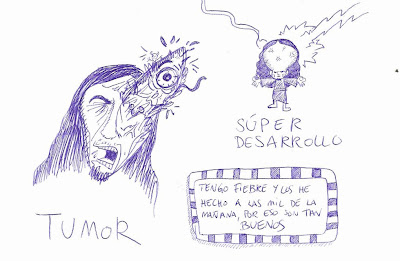 SÚPER
DESARROLLO
TENGO FIEBRE Y LOS HE
HECHO A LAS MIL DE LA
MAÑANA, POR ESO SON TAN
BUENOS
TUMOR